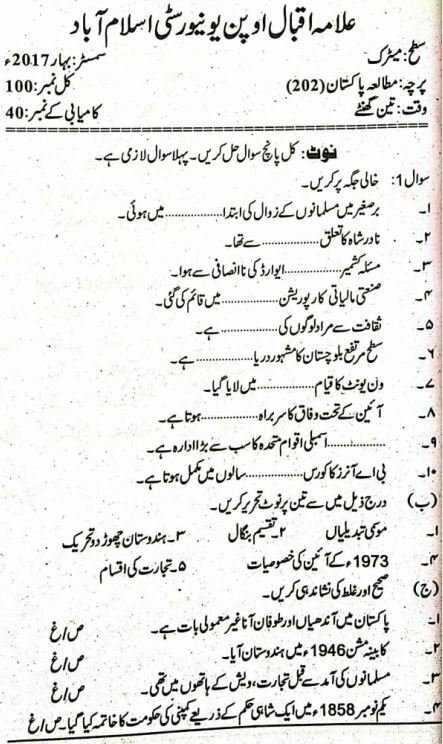 علامہ اقبال اوپن یونیورسٹی اسلام آباد
سطح: میٹرک سمسٹر: بہار 2017ء
پرچہ: مطالعہ پاکستان (202) کل نمبر: 100
وقت: تین گھنٹے کامیابی کے نمبر: 40
نوٹ: کل پانچ سوال حل کریں۔ پہلا سوال لازمی ہے۔
سوال 1: خالی جگہ پر کریں۔
۱۔ برصغیر میں مسلمانوں کے زوال کی ابتدا.............میں ہوئی۔
۲۔ نادر شاہ کا تعلق .............سے تھا۔
۳۔ مسئلہ کشمیر.............ایوارڈ کی ناانصافی سے ہوا۔
۴۔ صنعتی مالیاتی کارپوریشن .............میں قائم کی گئی۔
۵۔ ثقافت سے مراد لوگوں کی .............ہے۔
۶۔ سطح مرتفع بلوچستان کا مشہور دریا.............ہے۔
۷۔ ون یونٹ کا قیام .............میں لایا گیا۔
۸۔ آئین کے تحت وفاق کا سربراہ.............ہوتا ہے۔
۹۔ .............اسمبلی اقوام متحدہ کا سب سے بڑا ادارہ ہے۔
۱۰۔ بی اے آنرز کا کورس.............سالوں میں مکمل ہوتا ہے۔
(ب) درج ذیل میں سے تین پر نوٹ تحریر کریں۔
۱۔ موسمی تبدیلیاں ۲۔ تقسیم بنگال ۳۔ ہندوستان چھوڑ دو تحریک
۴۔ 1973ء کے آئین کی خصوصیات ۵۔ تجارت کی اقسام
(ج) صحیح اور غلط کی نشاندہی کریں۔
۱۔ پاکستان میں آندھیاں اور طوفان آنا غیر معمولی بات ہے۔ ص/غ
۲۔ کابینہ مشن 1946ء میں ہندوستان آیا۔ ص/غ
۳۔ مسلمانوں کی آمد سے قبل تجارت، ویش کے ہاتھوں میں تھی۔ ص/غ
۴۔ یکم نومبر 1858ء میں ایک شاہی حکم کے ذریعے کمپنی کی حکومت کا خاتمہ کیا گیا۔ ص/غ